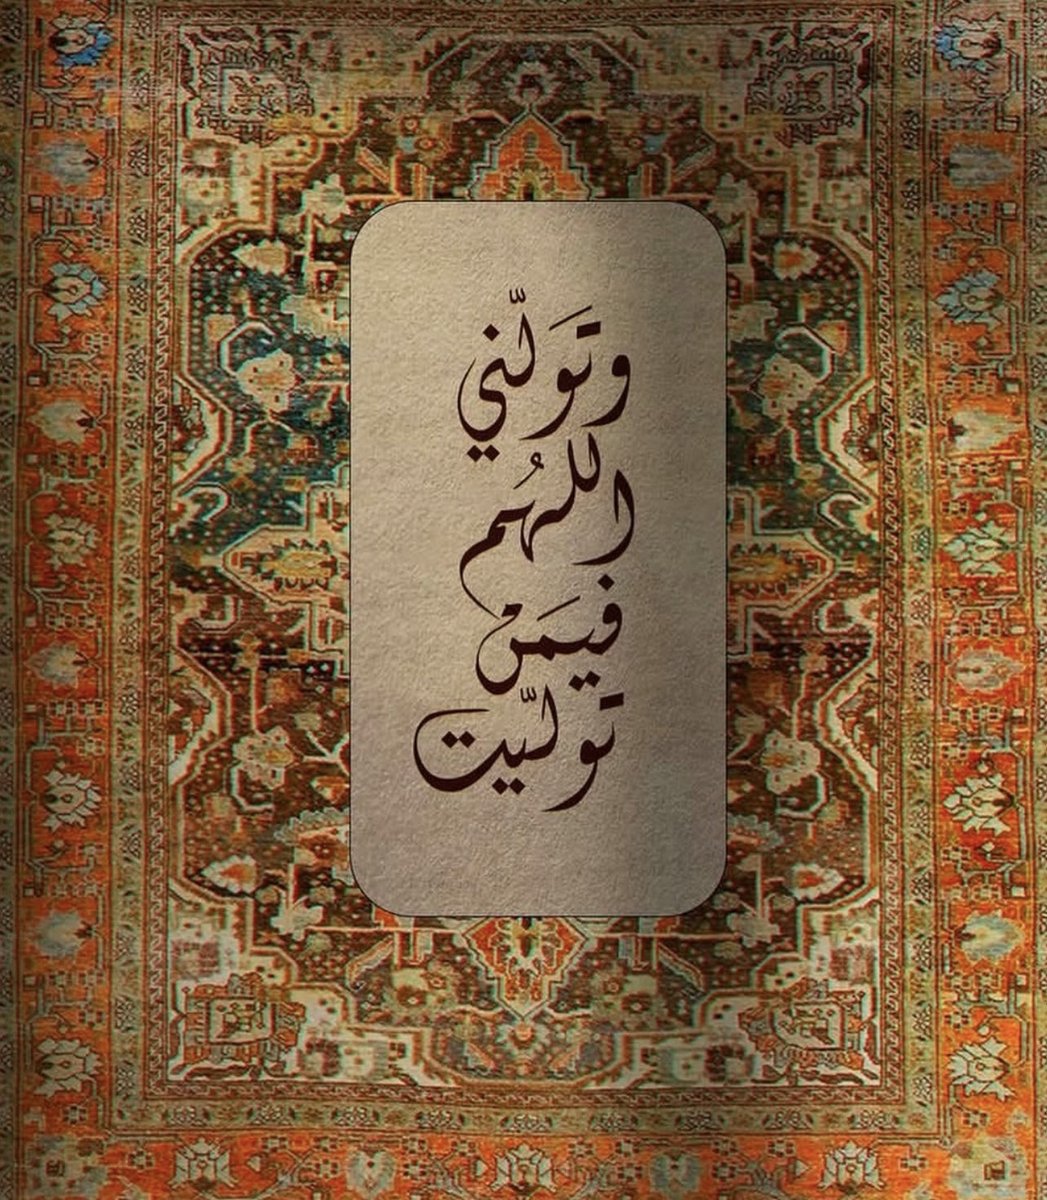 وتَوَلّني
اللهُم
فيمَن
توليّت